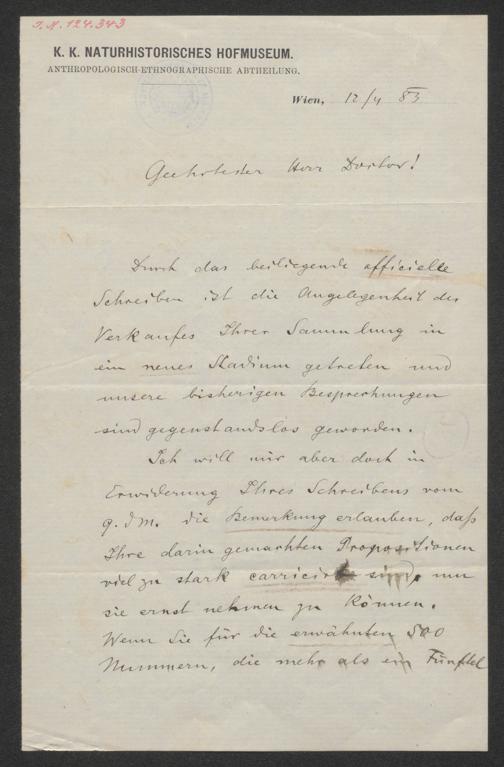 I.N. 124.343
K. K. NATURHISTORISCHES HOFMUSEUM.
ANTHROPOLOGISCH-ETHNOGRAPHISCHE ABTHEILUNG.
Wien, 12/4 83
Geehrtester Herr Doctor!
Durch das beiliegende officielle
Schreiben ist die Angelegenheit des
Verkaufes Ihrer Sammlung in
ein neues Stadium getreten und
unsere bisherigen Besprechungen
sind gegenstandslos geworden.
Ich will mir aber doch in
Erwiderung Ihres Schreibens vom
9. d M. die Bemerkung erlauben, daß
Ihre darin gemachten Propositionen
viel zu stark carricirt sind, um
sie ernst nehmen zu können.
Wenn Sie für die erwähnten 500
Nummern, die mehr als ein Fünftel